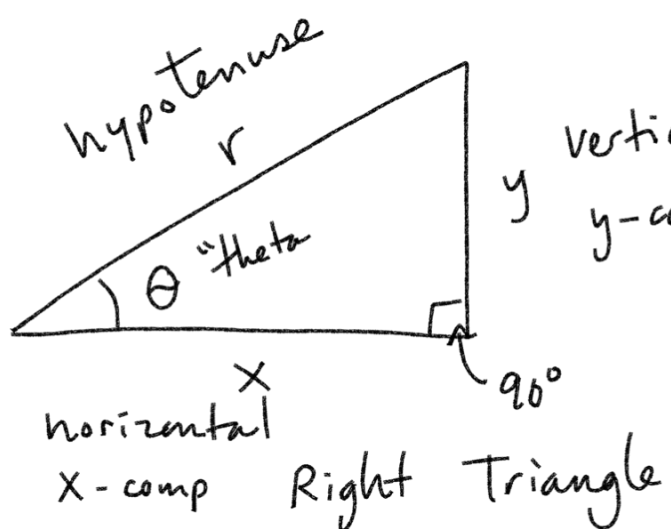 hypotenuse
r
y
θ "theta
x
90°
horizontal
x-comp
Right Triangle